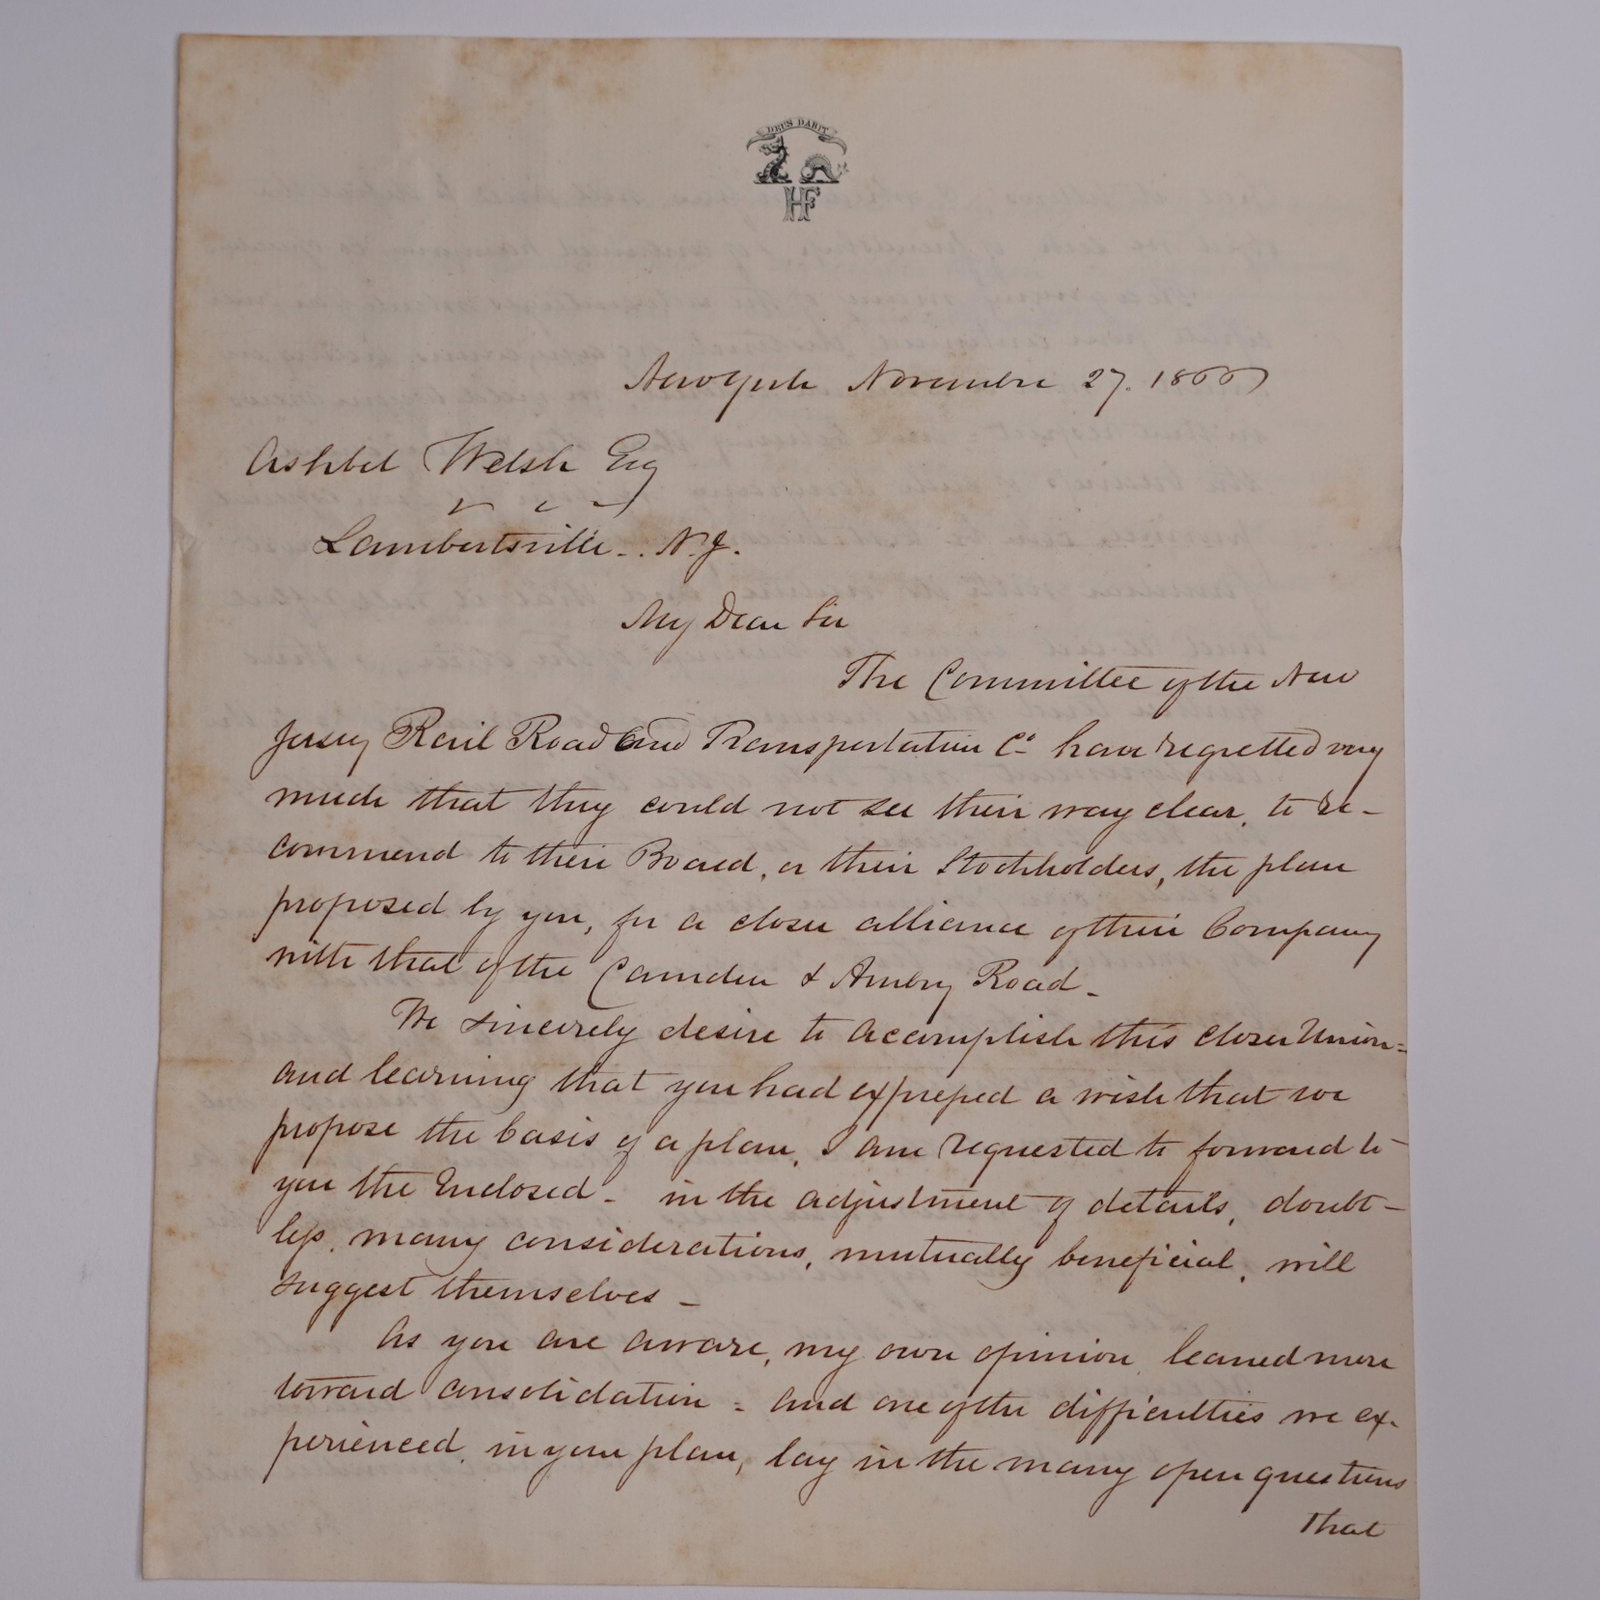 DEUS DABIT
HF
New York November 27. 1866
Ashbel Welsh Esq
Lambertsville. N.J.
My Dear Sir
The Committee of the New
Jersey Rail Road and Transportation Co. have regretted very
much that they could not see their way clear, to re-
commend to their Board, or their Stockholders, the plan
proposed by you, for a closer alliance of their Company
with that of the Camden & Amboy Road_
We sincerely desire to accomplish this closer Union=
and learning that you had expressed a wish that we
propose the basis of a plan, I am requested to forward to
you the Enclosed - in the adjustment of details, doubt-
less, many considerations, mutually beneficial, will
suggest themselves_
As you are aware, my own opinion leaned more
toward consolidation = and one of the difficulties we ex-
perienced, in your plan, lay in the many open questions
That